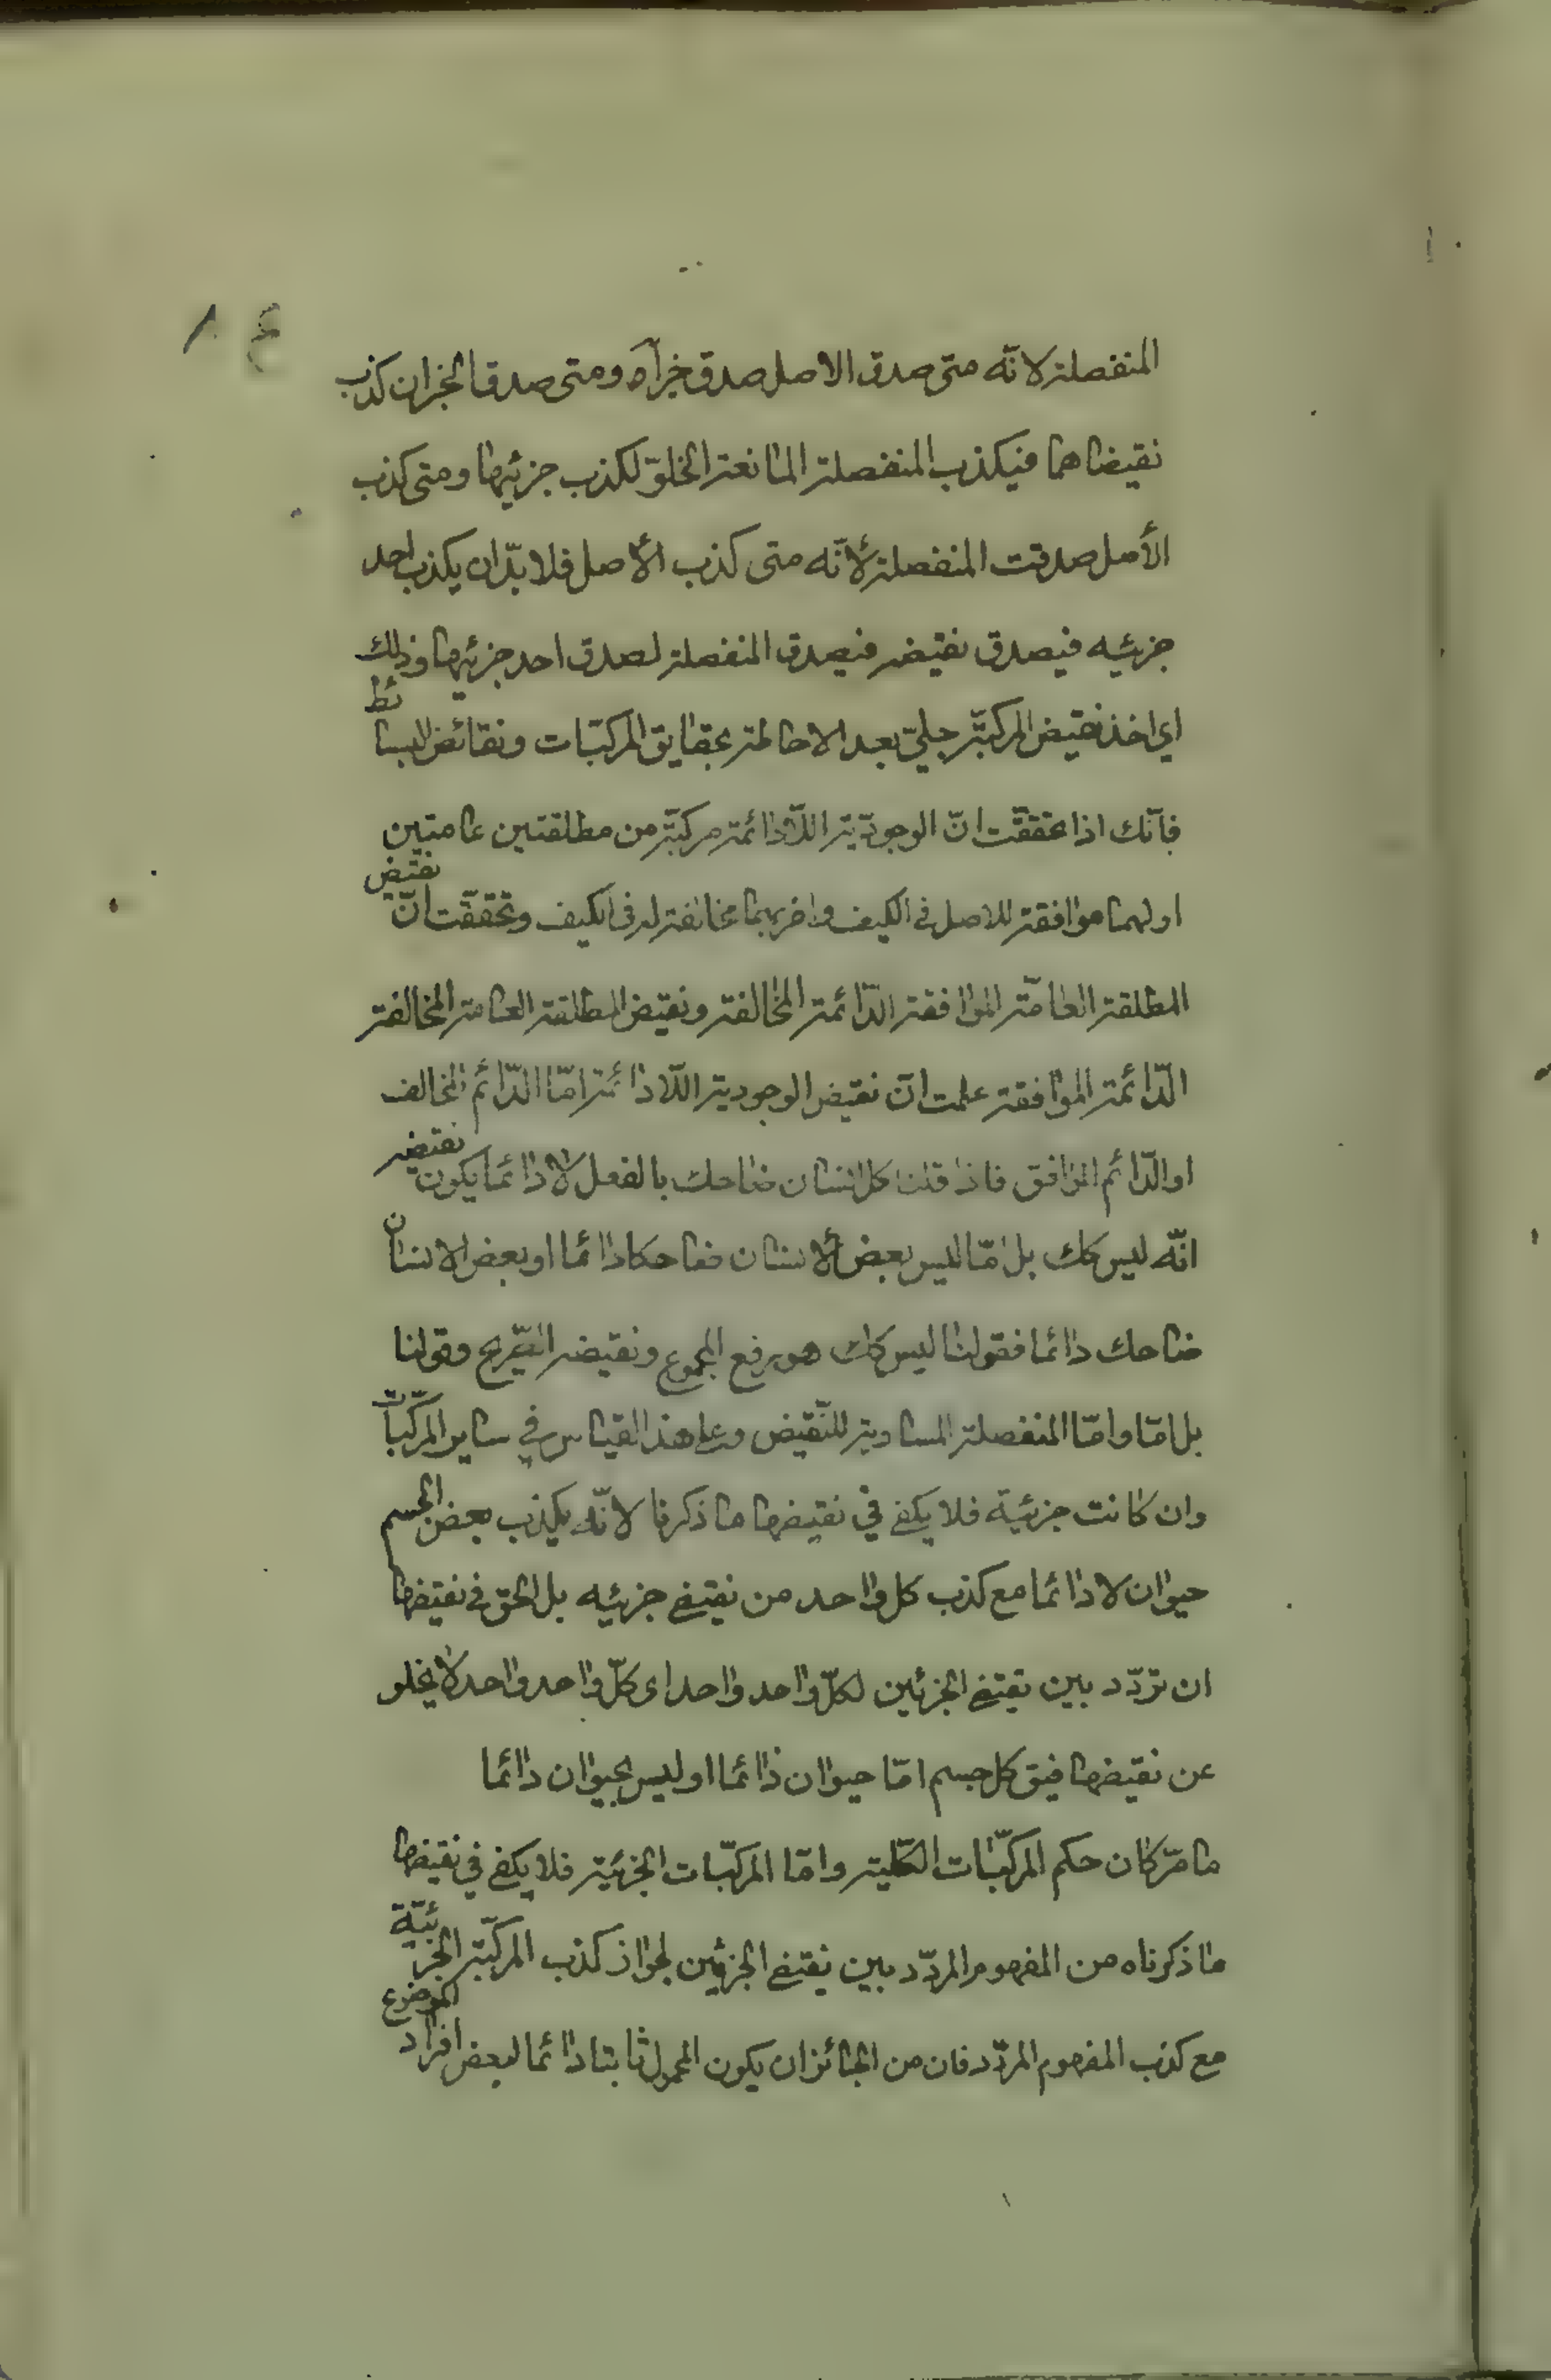 المنفصلة لانّه متى صدق الاصل صدق جزآه ومتى صدقا الجزان كذب
نقيضاهما فيكذب المنفصلة المانعة الخلوّ لكذب جزئيها ومتى كذب
الأصل صدقت المنفصلة لأنّه متى كذب الأصل فلا بدّ ان يكذب احد
جزئيه فيصدق نقيضه فيصدق المنفصلة لصدق احد جزئيها وذلك
اي اخذ نقيض المركبّة جليّ بعد الاحاطة بحقايق المركبّات ونقائض البسائط
فانّك اذا تحققّت انّ الوجوديّة اللّادائمة مركبّة من مطلقتين عامتين
اوليهما موافقة للاصل في الكيف واخريهما مخالفة له في الكيف وتحققّت انّ نقيض
المطلقة العامّة الموافقة الدّائمة المخالفة ونقيض المطلقة العامة المخالفة
الدّائمة الموافقة علمت انّ نقيض الوجودية اللّادائمة امّا الدّائم المخالف
او الدّائم الموافق فاذا قلنا كل انسان ضاحك بالفعل لا دائما يكون نقيضه
انّه ليس كك بل امّا ليس بعض الأنسان ضاحكا دائما او بعض الانسان
ضاحك دائما فقولنا ليس كك هو رفع المجموع ونقيضه الصّريح وقولنا
بل امّا وامّا المنفصلة المساوية للنّقيض وعلى هذا القياس في ساير المركّبات
وان كانت جزئيّة فلا يكفي في نقيضها ما ذكرنا لانّه يكذب بعض الجسم
حيوان لا دائما مع كذب كل واحد من نقيضي جزئيه بل الحق في نقيضها
ان تردّد بين نقيضي الجزئين لكلّ واحد واحد اى كلّ واحد واحد لا يخلو
عن نقيضها فيق كل جسم امّا حيوان دائما او ليس بحيوان دائما
ما مرّ كان حكم المركّبات الكليّة وامّا المركّبات الجزئيّة فلا يكفي في نقيضها
ما ذكرناه من المفهوم المردّد بين نقيضي الجزئين لجواز كذب المركّبة الجزئيّة
مع كذب المفهوم المردّد فان من الجائز ان يكون المحمول ثابتا دائما لبعض افراد الموضوع